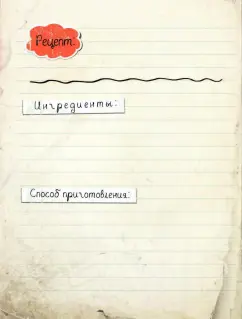 Рецепт.
Ингредиенты:
Способ приготовления: